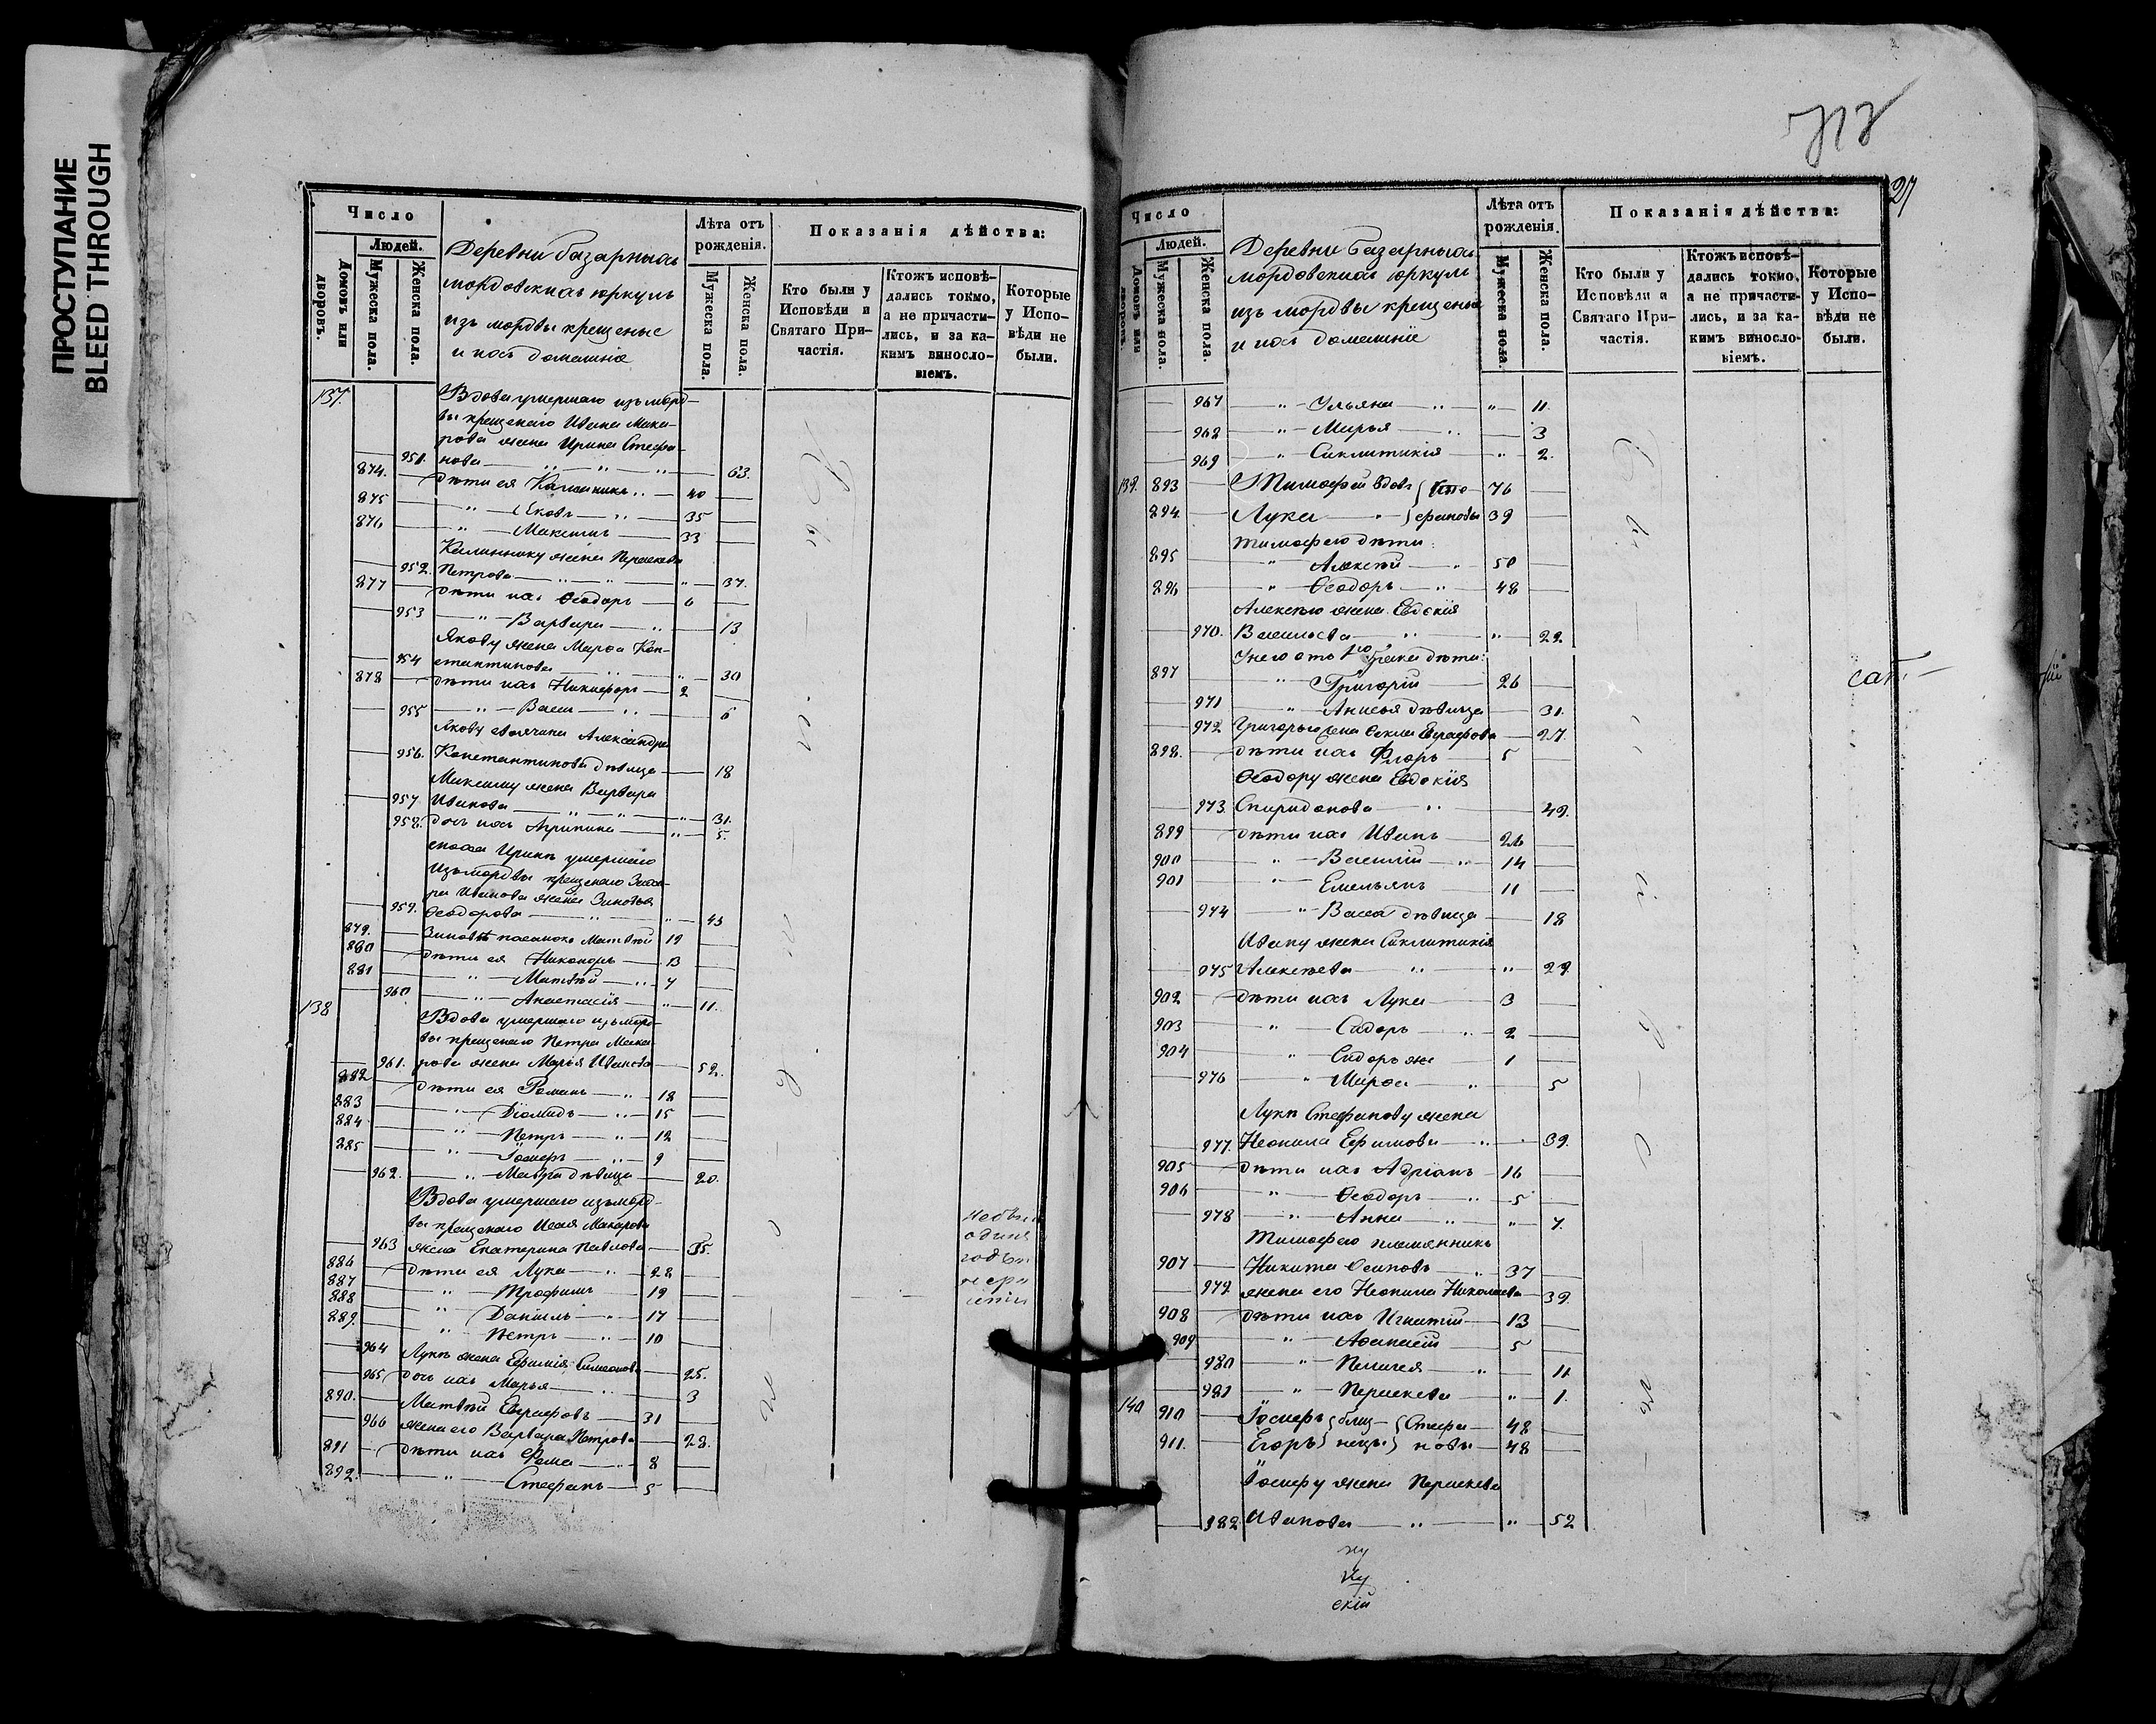 ПРОСТУПАНИЕ
BLEED THROUGH
Число
Людей.
Домовъ или дворовъ.
Мужеска пола.
Женска пола.
Деревни базарныхъ
мордовскихъ юркуль
изъ мордвы крещеные
и ихъ домашніе
Лѣта отъ рожденія.
Мужеска пола.
Женска пола.
Показанія дѣйства:
Кто были у Исповѣди и Святаго Причастія.
Ктожъ исповѣдались токмо, а не причастились, и за какимъ винословіемъ.
Которые у Исповѣди не были.
137. Вдова умершаго изъ морд-
вы крещенаго Ивана Мака-
рова жена Ирина Стефа-
951. нова 63.
874. дѣти ея Калинникъ 40
875 Яковъ 35
876 Максимъ 33
Калиннику жена Параскева
952. Петрова " 37.
877 дѣти ихъ Ѳеодоръ 6
953 " Варвара 13
Якову жена Марѳа Кон-
954 стантинова " 30
878 дѣти ихъ Никифоръ 2
955 " Васса 6
Якову своячина Александра
956. Константинова дѣвица 18
Максиму жена Варвара
957. Иванова " 31.
958. дочь ихъ Агрипина " 5.
сноха Иринѣ умершаго
изъ мордвы крещенаго Заха-
ра Иванова жена Зиновья
959. Ѳеодорова " 43
879. Зиновьѣ пасынокъ Матвѣй 19
880 дѣти ея Никаноръ 13
881 " Матвѣй 7
960 " Анастасія " 11.
138 Вдова умершаго изъ морд-
вы крещенаго Петра Мака-
961. рова жена Марья Иванова 52.
882 дѣти ея Романъ 18
883 " Діомидъ 15
884 " Петръ 12
885 " Іосифъ 9
962. " Мавра дѣвица 20.
Вдова умершаго изъ морд-
вы крещенаго Исая Макарова
963 жена Екатерина Павлова 55.
886 дѣти ея Лука 28
887 " Трофимъ 19
888 " Даніилъ 17
889. " Петръ 10
964 Лукѣ жена Ефимія Симеонова 25.
965 дочь ихъ Марья 3
890. Матвѣй Евграфовъ 31
966 жена его Варвара Петрова 28.
891 дѣти ихъ Ѳома 8
892. " Стефанъ 5
312
27
Число
Людей.
Домовъ или дворовъ.
Мужеска пола.
Женска пола.
Деревни базарныхъ
мордовскихъ юркуль
изъ мордвы крещеные
и ихъ домашніе
Лѣта отъ рожденія.
Мужеска пола.
Женска пола.
Показанія дѣйства:
Кто были у Исповѣди и Святаго Причастія.
Ктожъ исповѣдались токмо, а не причастились, и за какимъ винословіемъ.
Которые у Исповѣди не были.
967 " Ульяна " 11.
968 " Марья 3
969 " Сиклитикія " 2.
139. 893 Тимофей вдовъ Сте- 76
894 Лука " фановы 39
Тимофею дѣти:
895 " Алексѣй 50
896 " Ѳеодоръ 48
Алексѣю жена Евдокія
970. Васильева " 22
У него отъ 1го брака дѣти:
897 " Григорій 26
971 " Анисья дѣвица 31.
972 Григорью жена Ѳекла Евграфова 27.
898. дѣти ихъ Флоръ 5
Ѳеодору жена Евдокія
973. Спиридонова 49.
899 дѣти ихъ Иванъ 26
900 " Василій 14
901 " Емельянъ 11
974 " Васса дѣвица 18
Ивану жена Сиклитикія
975 Алексѣева " 29
902 дѣти ихъ Лука 3
903 " Сидоръ 2
904 " Сидоръ же 1
976 " Марѳа 5
Лукѣ Стефанову жена
977. Неонила Ефимова 39.
905 дѣти ихъ Адріанъ 16
906 " Ѳеодоръ 5
978 " Анна " 7.
Тимофею племянникъ
907 Никита Осиповъ 37
979. жена его Неонила Николаева 39.
908 дѣти ихъ Игнатій 13
909 " Аѳанасій 5
980 " Пелагея 11
981 " Параскева " 1.
140 910 Іосифъ близ- Стефа- 48
911. Егоръ нецы новы 48
Іосифу жена Параскева
982 Иванова " 52
скій